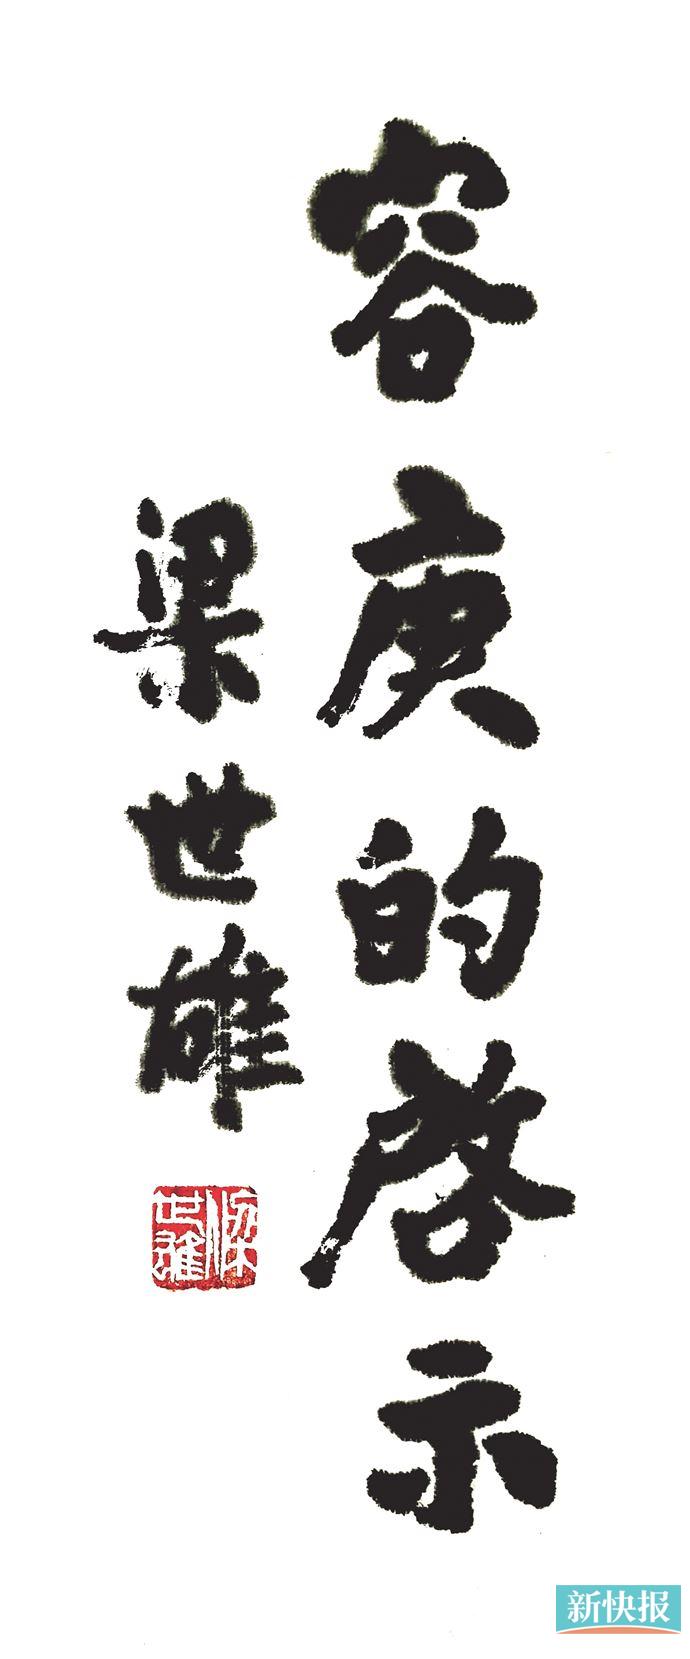 容庚的啓示
梁世雄
梁世雄
新快报